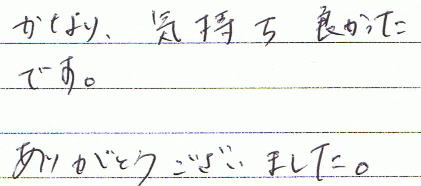 かしより、気持ち良かった
です。
ありがとうございました。